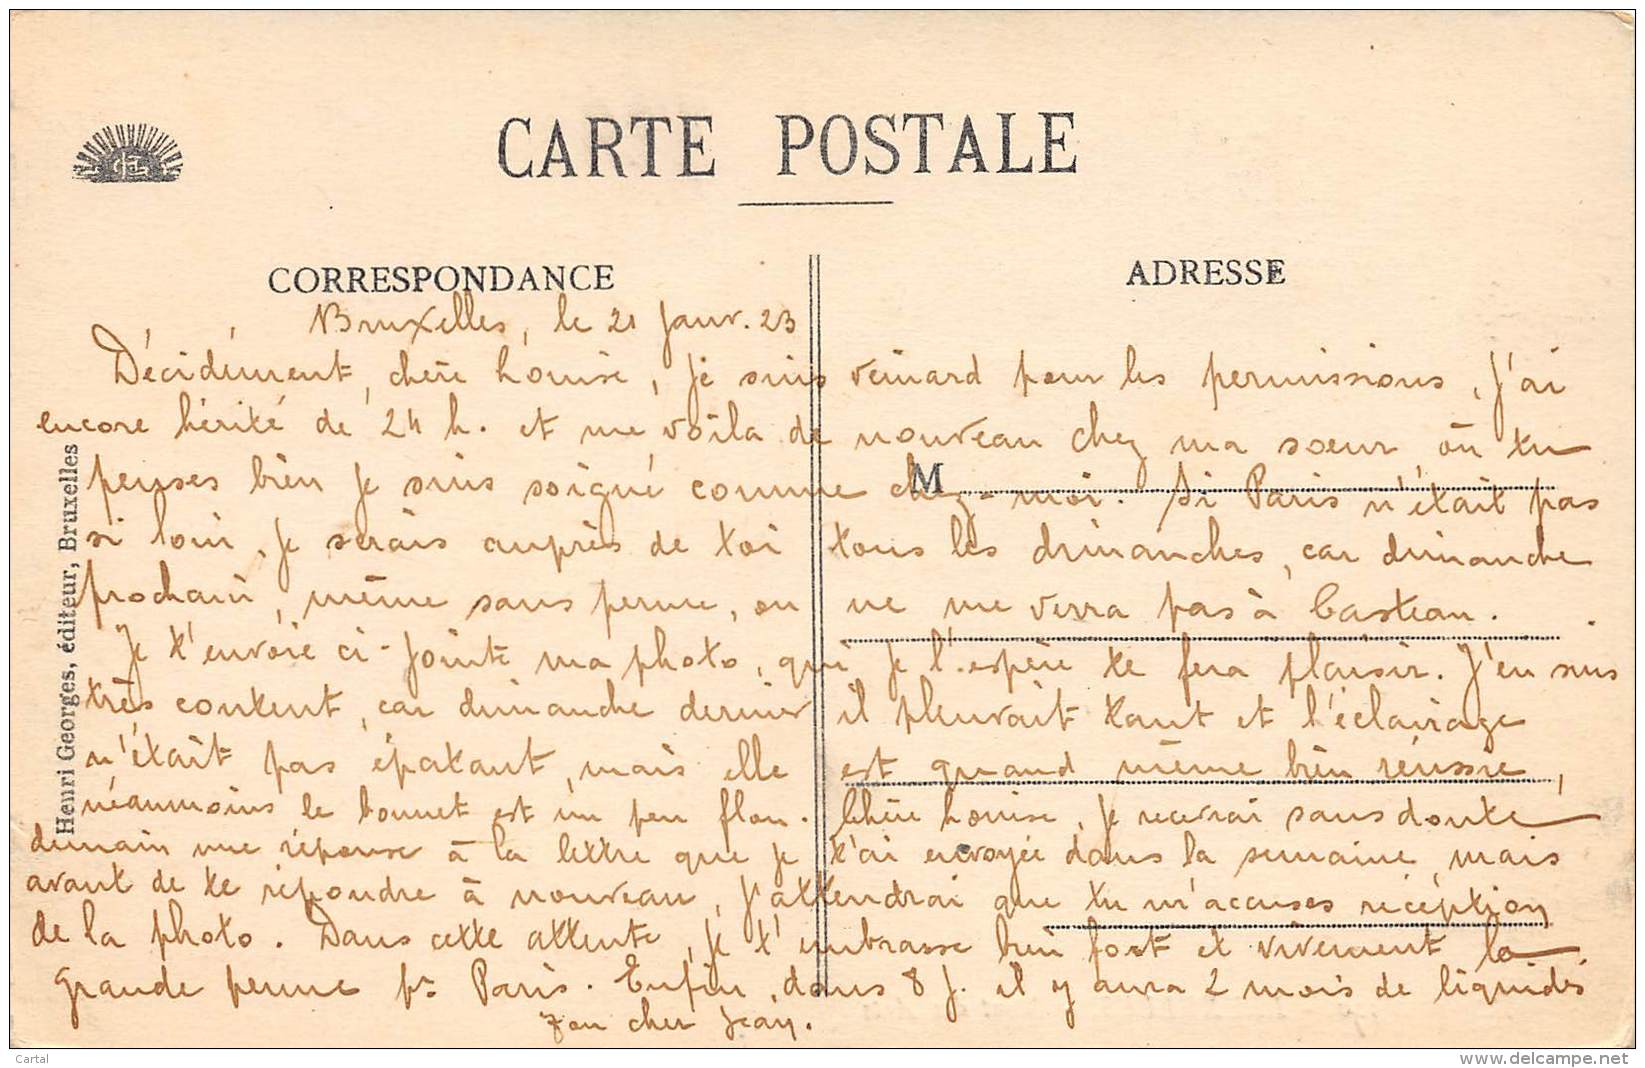 CARTE POSTALE
CORRESPONDANCE
ADRESSE
M
Henri Georges, éditeur, Bruxelles
Bruxelles, le 21 Janv. 23
Décidément, chère Louise, je suis veinard pour les permissions, j'ai
encore hérité de 24 h. et me voilà de nouveau chez ma soeur où tu
penses bien je suis soigné comme chez-moi. Si Paris n'était pas
si loin, je serais auprès de toi tous les dimanches, car dimanche
prochain, même sans perme, on ne me verra pas à Casteau.
Je t'envoie ci-jointe ma photo, qui je l'espère te fera plaisir. J'en suis
très content, car dimanche dernier il pleuvait tant et l'éclairage
n'était pas épatant, mais elle est quand même bien réussie,
néanmoins le bonnet est un peu flou. Chère Louise, je recevrai sans doute
demain une réponse à la lettre que je t'ai envoyée dans la semaine, mais
avant de te répondre à nouveau, j'attendrai que tu m'accuses réception
de la photo. Dans cette attente, je t'embrasse bien fort et vivement la
grande perme pr Paris. Enfin, dans 8 j. il y aura 2 mois de liquidés
Ton cher Jean.
Cartal
www.delcampe.net